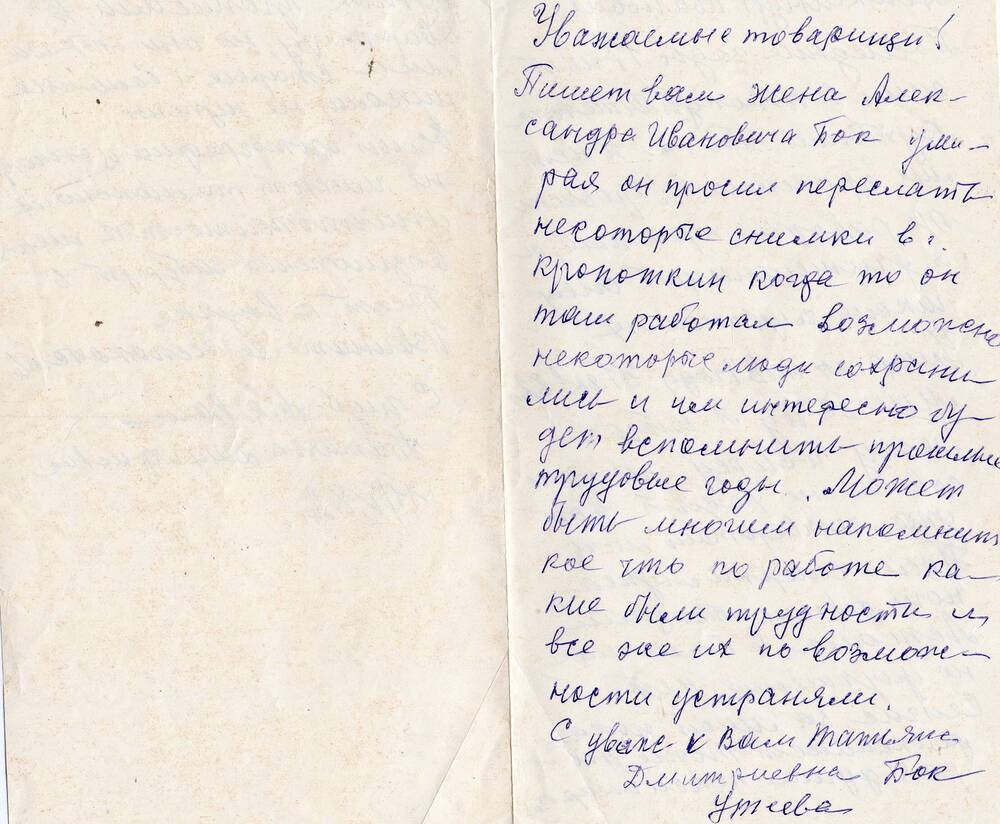 Уважаемые товарищи!
Пишет вам жена Алек-
сандра Ивановича Бок уми-
рая он просил переслать
некоторые снимки в г.
кропоткин когда то он
там работал возможно
некоторые люди сохрани-
лись и им интересно бу-
дет вспомнить прошлые
трудовые годы. Может
быть многим напомнит
кое что по работе ка-
кие были трудности и
все же их по возмож-
ности устраняли.
С уваж- к Вам Татьяна
Дмитриевна Бок